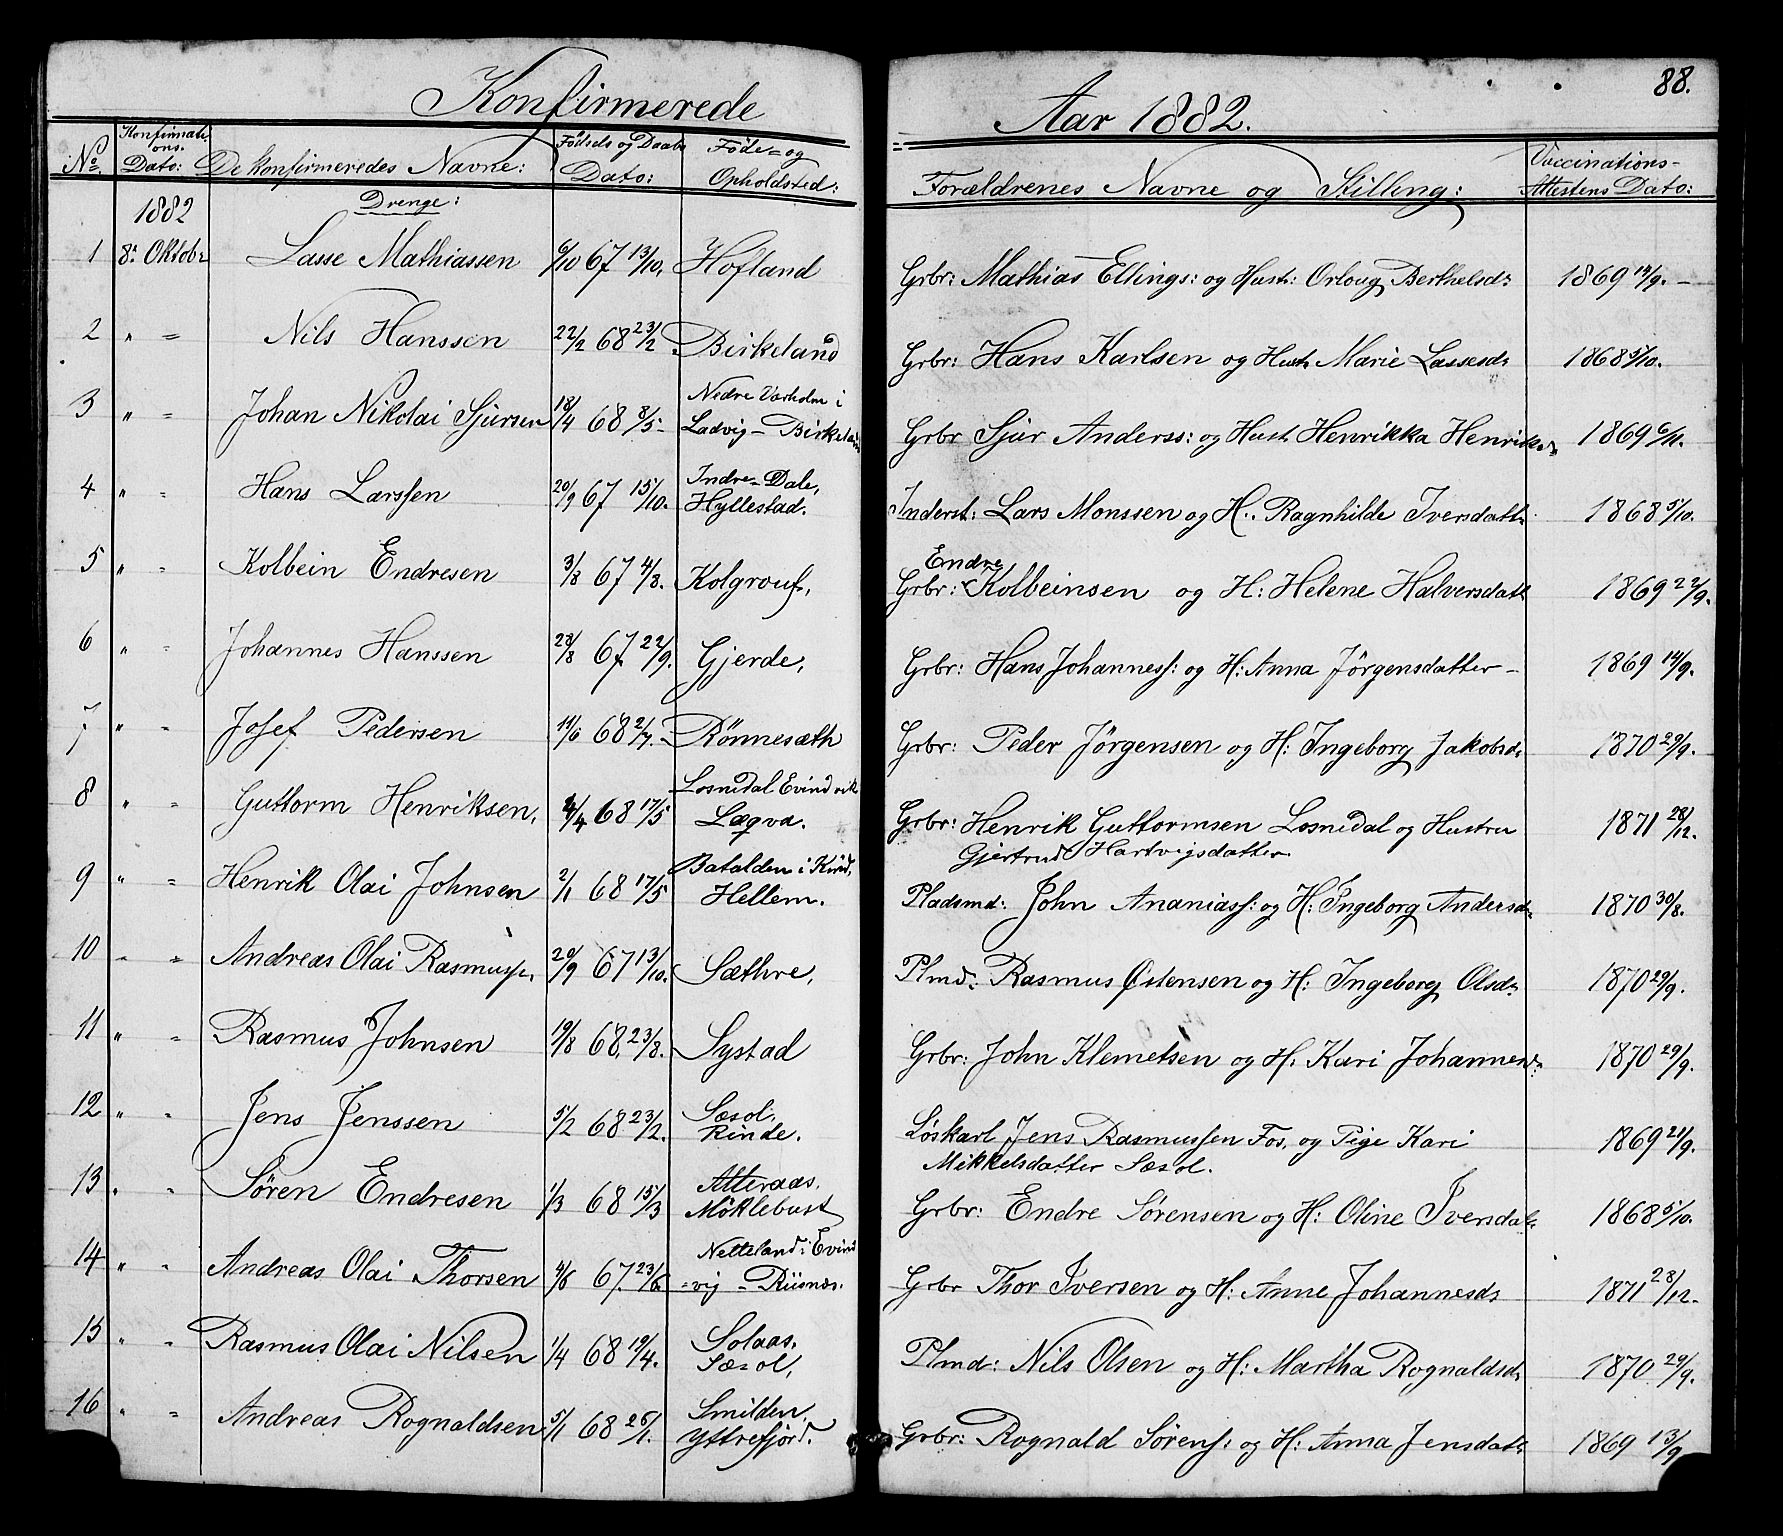 Konfirmerede
Aar 1882.
88.
No. Konfirmations. Dato: De konfirmeredes Navne: Födsels og Daabs Dato: Föde- og Opholdsted: Forældrenes Navne og Stilling: Vaccinations-Attestens Dato:
1882 Drenge:
1 8de Oktobr Lasse Mathiassen 6/10 67 13/10. Hofland Grbr: Mathias Ellings: og Hust: Orloug Berthelsdr 1869 14/9. –
2 " = Nils Hanssen 22/2 68 23/2 Birkeland Grbr: Hans Karlsen og Hustr Marie Lassesdr 1868 5/10.
3 " = Johan Nikolai Sjursen 18/4 68 3/5 – Nedre Varholm i Ladvig – Birkeland Grbr Sjur Anderss: og Hust Henrikka Henriksdr 1869 6/11.
4 " = Hans Larssen 20/9 67 15/10. Indre-Dale, Hyllestad. Inderst: Lars Monssen og H.. Ragnhilde Iversdattr 1868 5/10.
5 " = Kolbein Endresen 3/8 67 4/8. Kolgrouf, Grbr: Endre Kolbeinsen og H: Helene Halversdatt 1869 22/9.
6 " = Johannes Hanssen 28/8 67 22/9. Gjerde, Grbr: Hans Johanness: og H: Anna Jörgensdatter – 1869 14/9.
7 " = Josef Pedersen 14/6 68 2/7. Rönnesæth Grbr: Peder Jörgensen og H: Ingeborg Jakobsdr 1870 29/9.
8 " = Guttorm Henriksen, 4/4 68 17/5 Losnedal Evindvik Lægva. Grbr: Henrik Guttormsen Losnedal og Hustru Gjertrud Hartvigsdatter. 1871 28/12.
9 " = Henrik Olai Johnsen 2/1 68 17/5 Batalden i Kind, Hellem. Pladsmd: John Ananiass: og H: Ingeborg Andersdr 1870 30/8.
10 " = Andreas Olai Rasmuss. 20/9 67 13/10. Sæthre, Plmd: Rasmus Østensen og H: Ingeborg Olsdr 1870 29/9.
11 " = Rasmus Johnsen 19/8 68. 23/8. Systad Grbr: John Klemetsen og H. Kari Johannesdr 1870 29/9.
12 " = Jens Jenssen 5/2 68 23/2. Sæsol. Rinde. Löskarl Jens Rasmussen Fos. og Pige Kari Mikkelsdatter Sæsol. 1869 21/9.
13 " = Søren Endresen 1/3 68 15/3 Atteraas. Möklebust Grbr: Endre Sørensen og H: Oline Iversdat. 1868 5/10.
14 " = Andreas Olai Thorsen 4/6 67. 23/6 Netteland i Evind =vig – Riisnæs. Grbr Thor Iversen og H: Anne Johannesdr 1871 28/12.
15 " = Rasmus Olai Nilsen 1/4 68 19/4. Solaas. Sæsol, Plmd: Nils Olsen og H: Martha Rognaldsdr 1870 29/9.
16 " = Andreas Rognaldsen 5/1 68 26/1. Smilden, Yttrefjord. Grbr: Rognald Sörens: og H: Anna Jensdatr 1869 13/9